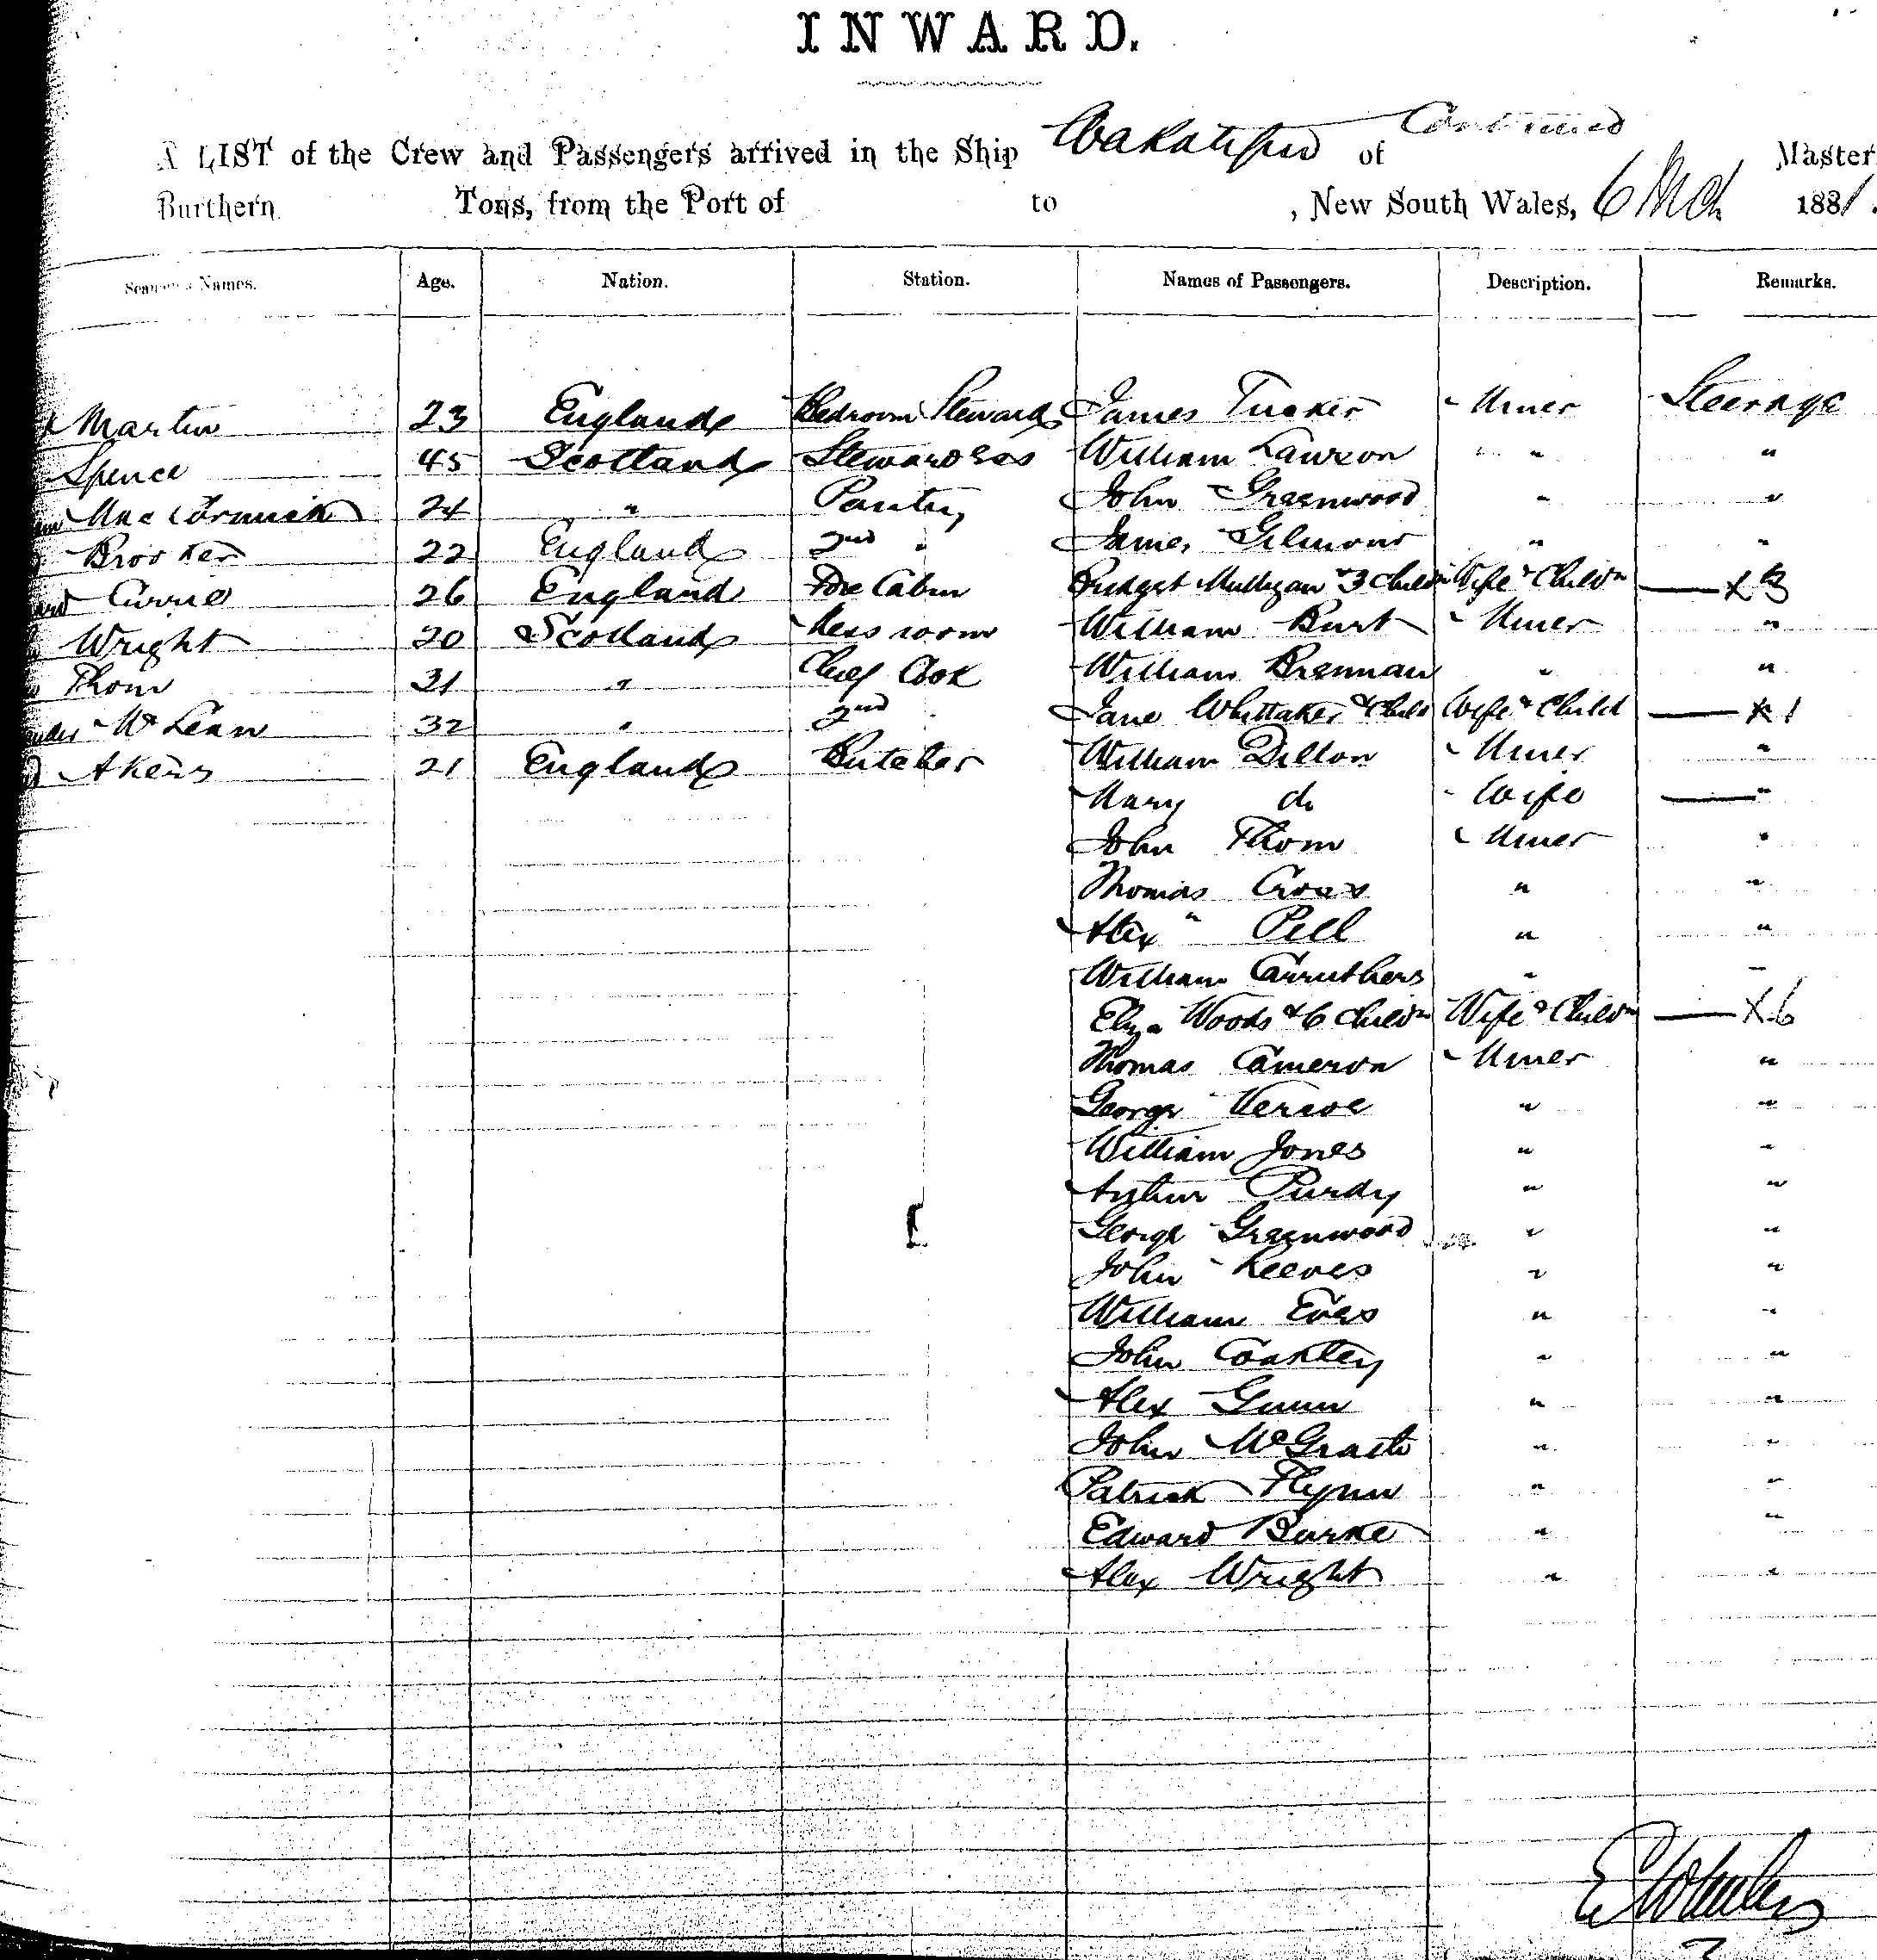 INWARD.
Continued
A LIST of the Crew and Passengers arrived in the Ship Wakatipu of Master
Burthern Tons, from the Port of to , New South Wales, 6 Mch 1881.
Names. Age. Nation. Station. Names of Passengers. Description. Remarks.
Martin 23 England Bedroom Steward James Tucker Miner Steerage
Spence 45 Scotland Stewardess William Lawson " "
MacCormick 24 " Pantry John Greenwood " "
Brooker 22 England 2nd " James Gilmour " "
Currie 26 England Fore Cabin Bridget Mulligan & 3 Childn Wife & Childn x 3
Wright 20 Scotland Mess room William Burt Miner "
Thom 31 " Chief Cook William Brennan " "
Mc Lean 32 " 2nd Jane Whittaker & Child Wife & Child x 1
Akers 21 England Butcher William Dillon Miner "
Mary do Wife "
John Thom Miner "
Thomas " "
Alex " Pell " "
William Carruthers " "
Eliza Woods & 6 Childn Wife & Childn x 6
Thomas Cameron Miner "
George " "
William Jones " "
Arthur Purdy " "
George Greenwood " "
John Reeves " "
William Eves " "
John Coakley " "
Alex Gunn " "
John McGrath " "
Patrick Flynn " "
Edward Burke " "
Alex Wright " "